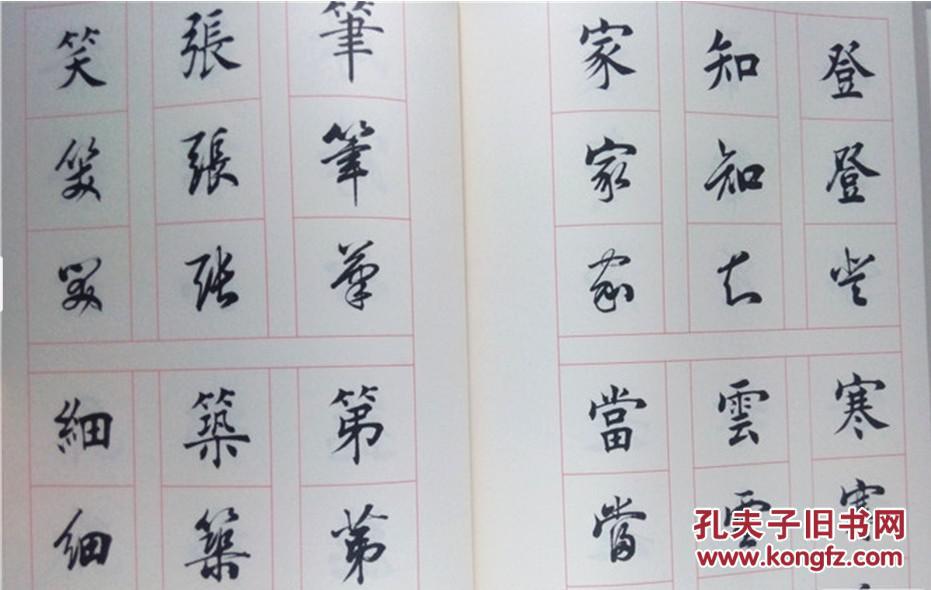 笑 張 筆 家 知 登
笑 張 筆 家 知 登
笑 張 筆 家 知 登
細 築 第 當 雲 寒
細 築 第 當 雲 寒
孔夫子旧书网
www.kongfz.com